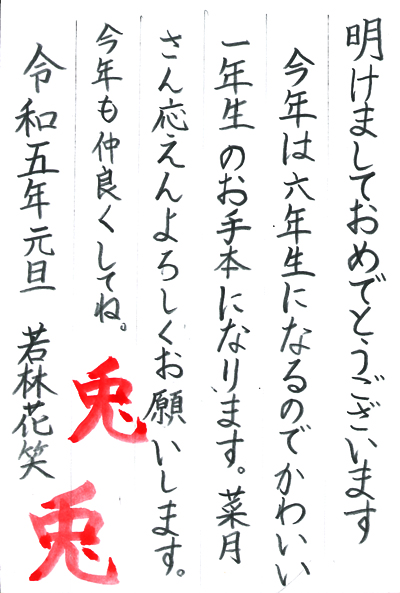 明けましておめでとうございます
今年は六年生になるのでかわいい
一年生のお手本になります。菜月
さん応えんよろしくお願いします。
今年も仲良くしてね。
令和五年元旦 若林花笑
兎
兎